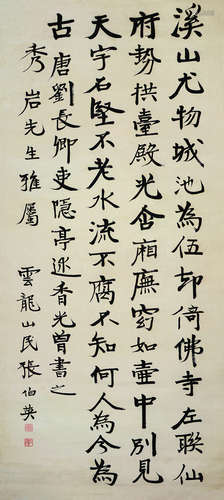 溪山尤物城池為伍却倚佛寺左聯仙
府勢拱臺殿光含廂廡窈如壺中別見
天宇石堅不老水流不腐不知何人為今為
古唐劉長卿吏隱亭述香光曾書之
秀岩先生雅屬
雲龍山民張伯英